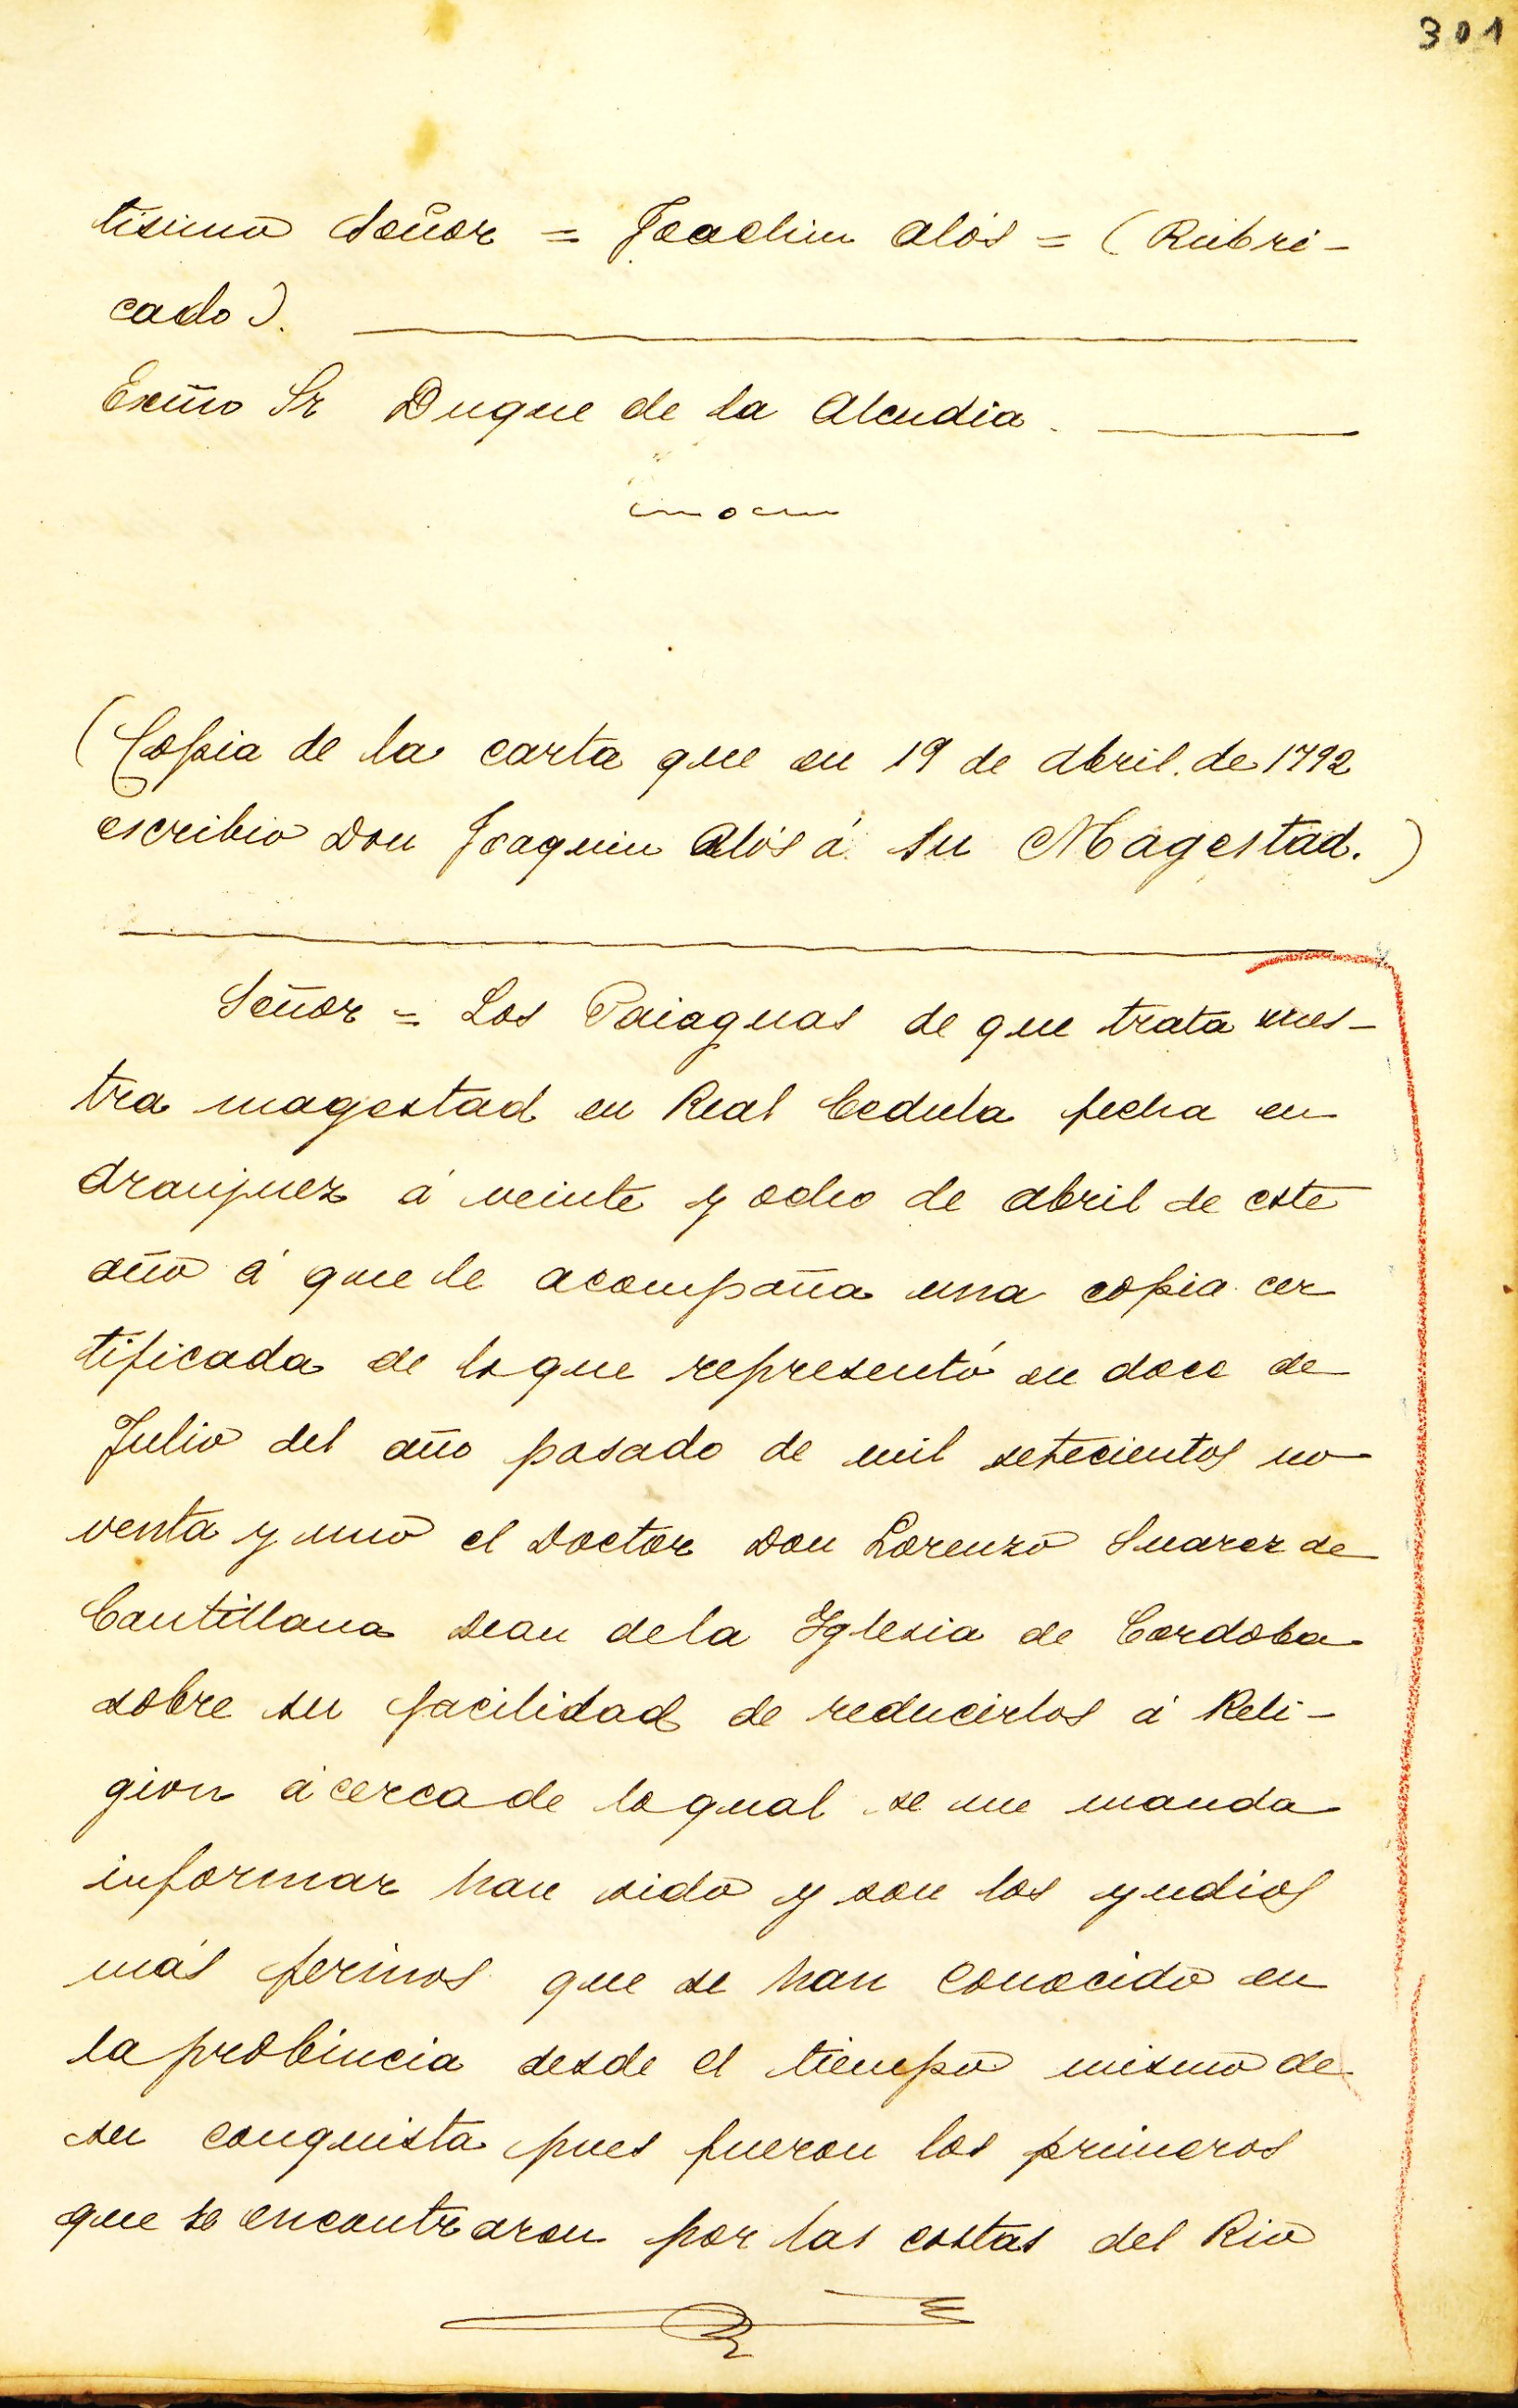 301
tisimo Señor = Joachim Alós = (Rubri-
cado).
Exc̃mo Sr Duque de la Alcudia.
(Copia de la carta que en 19 de Abril de 1792
escribio Don Joaquin Alós á su Magestad.)
Señor = Los Paiaguas de que trata vues-
tra magestad en Real Cedula fecha en
Aranjuez á veinte y ocho de abril de este
año á que le acompaña una copia cer
tificada de lo que representó en doce de
Julio del año pasado de mil setecientos no
venta y uno el Doctor Don Lorenzo Suarez de
Cantillana Dean de la Yglesia de Cordoba
sobre su facilidad de reducirlos á Reli-
gion ácerca de lo qual se me manda
informar han sido y son los yndios
más ferinos que se han conocido en
la probincia desde el tiempo mismo de
su conquista pues fueron los primeros
que se encontraron por las costas del Rio